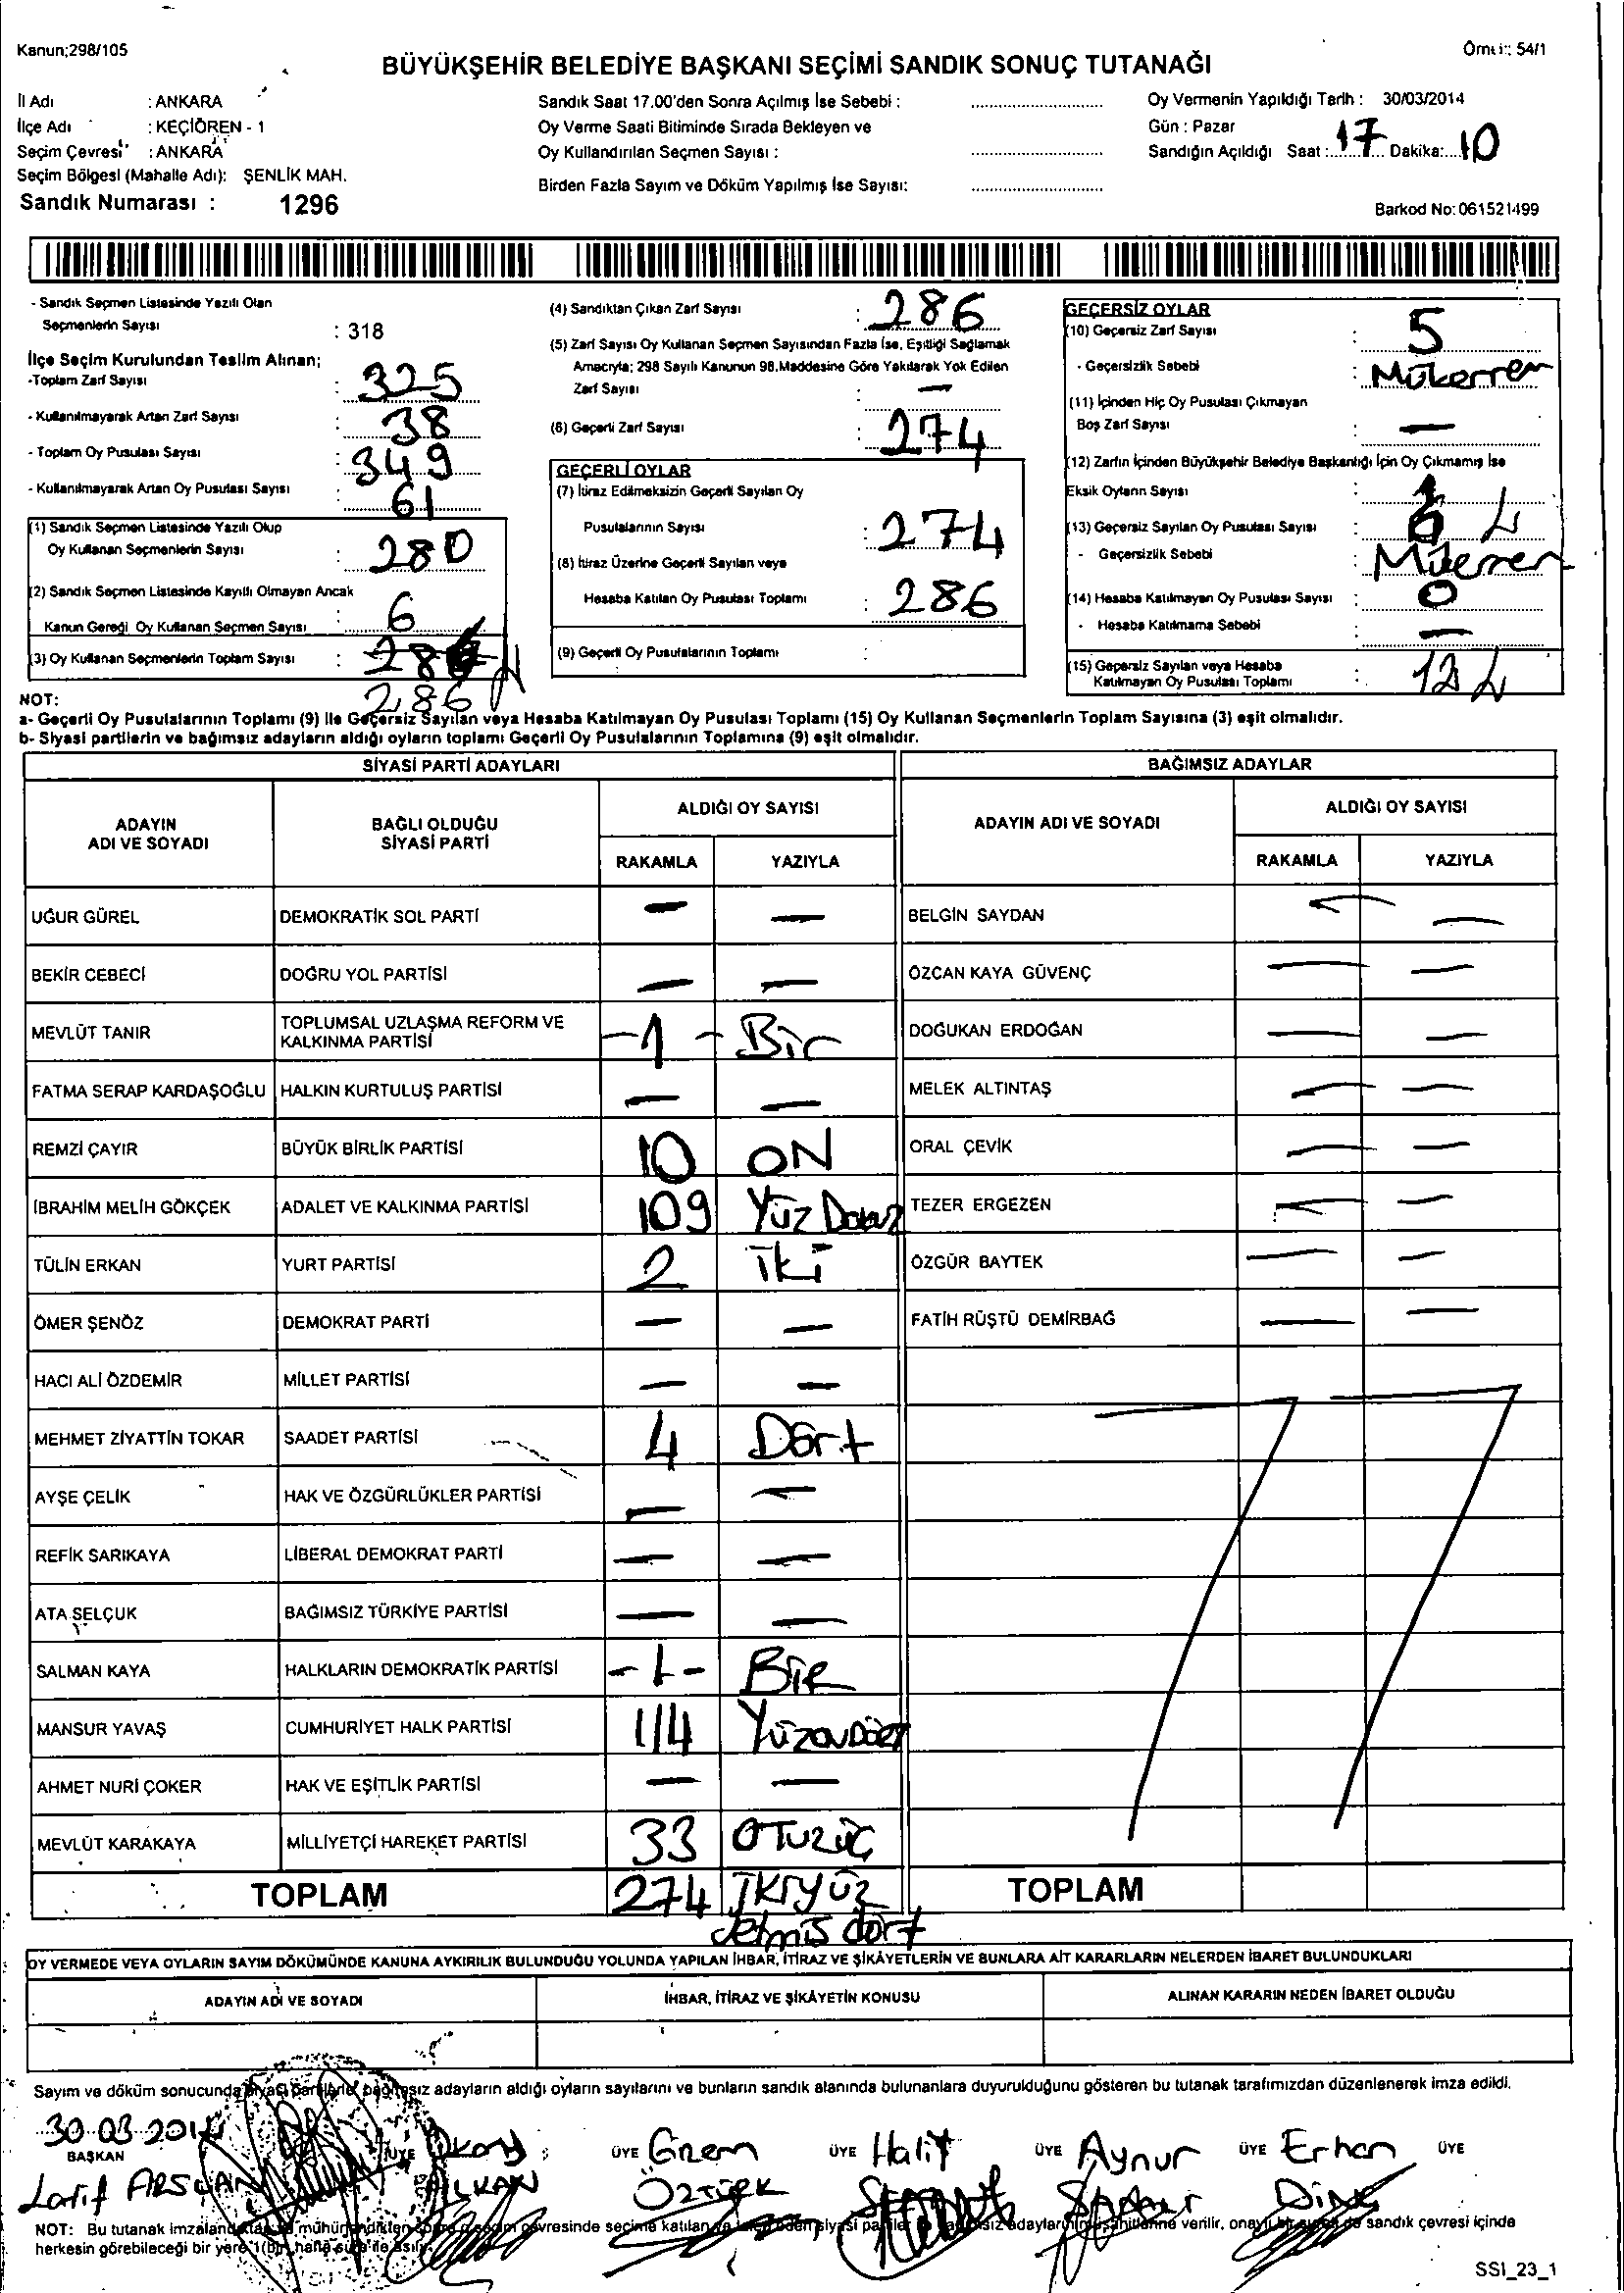 Kanun;298/105
BÜYÜKŞEHİR BELEDİYE BAŞKANI SEÇİMİ SANDIK SONUÇ TUTANAĞI
54/1
İl Adı : ANKARA
İlçe Adı : KEÇİÖREN - 1
Seçim Çevresi : ANKARA
Seçim Bölgesi (Mahalle Adı): ŞENLİK MAH.
Sandık Numarası : 1296
Sandık Saat 17.00'den Sonra Açılmış İse Sebebi :
Oy Verme Saati Bitiminde Sırada Bekleyen ve
Oy Kullandırılan Seçmen Sayısı :
Birden Fazla Sayım ve Döküm Yapılmış İse Sayısı:
Oy Vermenin Yapıldığı Tarih : 30/03/2014
Gün : Pazar
Sandığın Açıldığı Saat : 17 Dakika: 10
Barkod No: 061521499
- Sandık Seçmen Listesinde Yazılı Olan
Seçmenlerin Sayısı : 318
İlçe Seçim Kurulundan Teslim Alınan;
-Toplam Zarf Sayısı : 325
- Kullanılmayarak Artan Zarf Sayısı : 38
- Toplam Oy Pusulası Sayısı : 349
- Kullanılmayarak Artan Oy Pusulası Sayısı : 61
(1) Sandık Seçmen Listesinde Yazılı Olup
Oy Kullanan Seçmenlerin Sayısı : 280
(2) Sandık Seçmen Listesinde Kayıtlı Olmayan Ancak
Kanun Gereği Oy Kullanan Seçmen Sayısı : 6
(3) Oy Kullanan Seçmenlerin Toplam Sayısı :
286
(4) Sandıktan Çıkan Zarf Sayısı : 286
(5) Zarf Sayısı Oy Kullanan Seçmen Sayısından Fazla İse, Eşitliği Sağlamak
Amacıyla; 298 Sayılı Kanunun 98.Maddesine Göre Yakılarak Yok Edilen
Zarf Sayısı : —
(6) Geçerli Zarf Sayısı : 274
GEÇERLİ OYLAR
(7) İtiraz Edilmeksizin Geçerli Sayılan Oy
Pusulalarının Sayısı : 274
(8) İtiraz Üzerine Geçerli Sayılan veya
Hesaba Katılan Oy Pusulası Toplamı : 286
(9) Geçerli Oy Pusulalarının Toplamı :
GEÇERSİZ OYLAR
(10) Geçersiz Zarf Sayısı : 5
- Geçersizlik Sebebi : Mükerrer
(11) İçinden Hiç Oy Pusulası Çıkmayan
Boş Zarf Sayısı : —
(12) Zarfın İçinden Büyükşehir Belediye Başkanlığı İçin Oy Çıkmamış İse
Eksik Oyların Sayısı :
(13) Geçersiz Sayılan Oy Pusulası Sayısı :
- Geçersizlik Sebebi :
(14) Hesaba Katılmayan Oy Pusulası Sayısı : 0
- Hesaba Katılmama Sebebi : —
(15) Geçersiz Sayılan veya Hesaba
Katılmayan Oy Pusulası Toplamı : 12
NOT:
a- Geçerli Oy Pusulalarının Toplamı (9) ile Geçersiz Sayılan veya Hesaba Katılmayan Oy Pusulası Toplamı (15) Oy Kullanan Seçmenlerin Toplam Sayısına (3) eşit olmalıdır.
b- Siyasi partilerin ve bağımsız adayların aldığı oyların toplamı Geçerli Oy Pusulalarının Toplamına (9) eşit olmalıdır.
SİYASİ PARTİ ADAYLARI
ADAYIN ADI VE SOYADI
BAĞLI OLDUĞU SİYASİ PARTİ
ALDIĞI OY SAYISI
RAKAMLA YAZIYLA
UĞUR GÜREL DEMOKRATİK SOL PARTİ — —
BEKİR CEBECİ DOĞRU YOL PARTİSİ — —
MEVLÜT TANIR TOPLUMSAL UZLAŞMA REFORM VE KALKINMA PARTİSİ -1- Bir
FATMA SERAP KARDAŞOĞLU HALKIN KURTULUŞ PARTİSİ — —
REMZİ ÇAYIR BÜYÜK BİRLİK PARTİSİ 10 ON
İBRAHİM MELİH GÖKÇEK ADALET VE KALKINMA PARTİSİ 109 Yüz Dokuz
TÜLİN ERKAN YURT PARTİSİ 2 İki
ÖMER ŞENÖZ DEMOKRAT PARTİ — —
HACI ALİ ÖZDEMİR MİLLET PARTİSİ — —
MEHMET ZİYATTİN TOKAR SAADET PARTİSİ 4 Dört
AYŞE ÇELİK HAK VE ÖZGÜRLÜKLER PARTİSİ — —
REFİK SARIKAYA LİBERAL DEMOKRAT PARTİ — —
ATA SELÇUK BAĞIMSIZ TÜRKİYE PARTİSİ — —
SALMAN KAYA HALKLARIN DEMOKRATİK PARTİSİ -1- BİR
MANSUR YAVAŞ CUMHURİYET HALK PARTİSİ 114 YüzonDört
AHMET NURİ ÇOKER HAK VE EŞİTLİK PARTİSİ — —
MEVLÜT KARAKAYA MİLLİYETÇİ HAREKET PARTİSİ 33 OTUZÜÇ
TOPLAM 274 İKİYÜZ
Jetmiş dört
BAĞIMSIZ ADAYLAR
ADAYIN ADI VE SOYADI
ALDIĞI OY SAYISI
RAKAMLA YAZIYLA
BELGİN SAYDAN — —
ÖZCAN KAYA GÜVENÇ — —
DOĞUKAN ERDOĞAN — —
MELEK ALTINTAŞ — —
ORAL ÇEVİK — —
TEZER ERGEZEN — —
ÖZGÜR BAYTEK — —
FATİH RÜŞTÜ DEMİRBAĞ — —
TOPLAM
OY VERMEDE VEYA OYLARIN SAYIM DÖKÜMÜNDE KANUNA AYKIRILIK BULUNDUĞU YOLUNDA YAPILAN İHBAR, İTİRAZ VE ŞİKÂYETLERİN VE BUNLARA AİT KARARLARIN NELERDEN İBARET BULUNDUKLARI
ADAYIN ADI VE SOYADI
İHBAR, İTİRAZ VE ŞİKÂYETİN KONUSU
ALINAN KARARIN NEDEN İBARET OLDUĞU
Sayım ve döküm sonucunda siyasi partilerle bağımsız adayların aldığı oyların sayılarını ve bunların sandık alanında bulunanlara duyurulduğunu gösteren bu tutanak tarafımızdan düzenlenerek imza edildi.
30.03.2014
BAŞKAN ÜYE ÜYE Gizem ÜYE Halit ÜYE Aynur ÜYE Erhan ÜYE
Latif ARSLAN ÖZTÜRK DİNÇ
NOT: Bu tutanak imzalandıktan ve mühürlendikten sonra o seçim çevresinde seçime katılan siyasi partiler bağımsız adayların müşahitlerine verilir, onaylı bir sureti de sandık çevresi içinde
herkesin görebileceği bir yere 1(bir) hafta süre ile asılır.
SSI_23_1